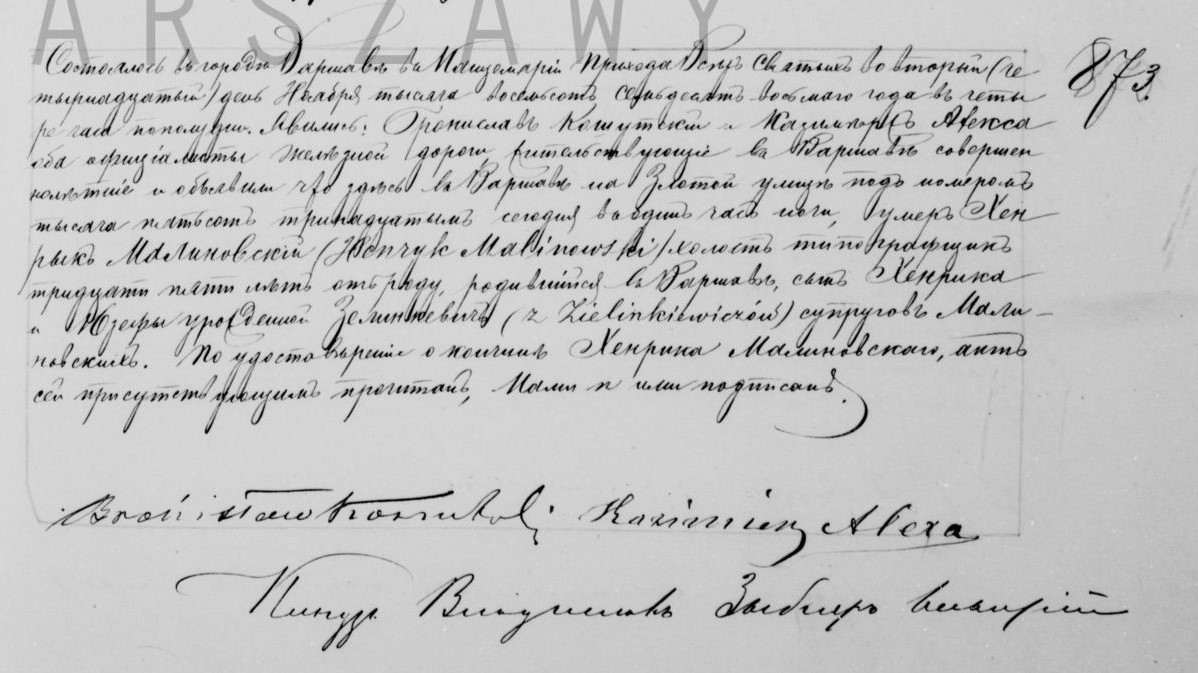 ARSZAWY
873.
Состоялось въ городѣ Варшавѣ въ Канцеляріи Прихода Всѣхъ Святыхъ во вторый (че
тырнадцатый) день Ноября тысяча восемьсотъ семьдесятъ восьмаго года въ четы
ре часа пополудни. Явились: Брониславъ Кошутскій и Казимѣръ Алекса
оба оффиціалисты желѣзной дороги, жительствующіе въ Варшавѣ совершен
нолѣтніе и объявили что здѣсь въ Варшавѣ на Злотой улицѣ подъ номеромъ
тысяча пятьсотъ тринадцатымъ сегодня въ одинъ часъ ночи, умеръ Хен
рыкъ Малиновскій (Henryk Malinowski) холостъ типографщикъ
тридцати пяти лѣтъ отъ роду, родившійся въ Варшавѣ, сынъ Хенрика
и Юзефы урожденной Зелинкевичъ (z Zielinkiewiczów) супруговъ Мали-
новскихъ. По удостовѣреніи о кончинѣ Хенрика Малиновскаго, актъ
сей присутствующимъ прочитанъ, Нами и ими подписанъ.
Bronisław Koszutski Kazimierz Alexa
Ксендзъ Владиславъ